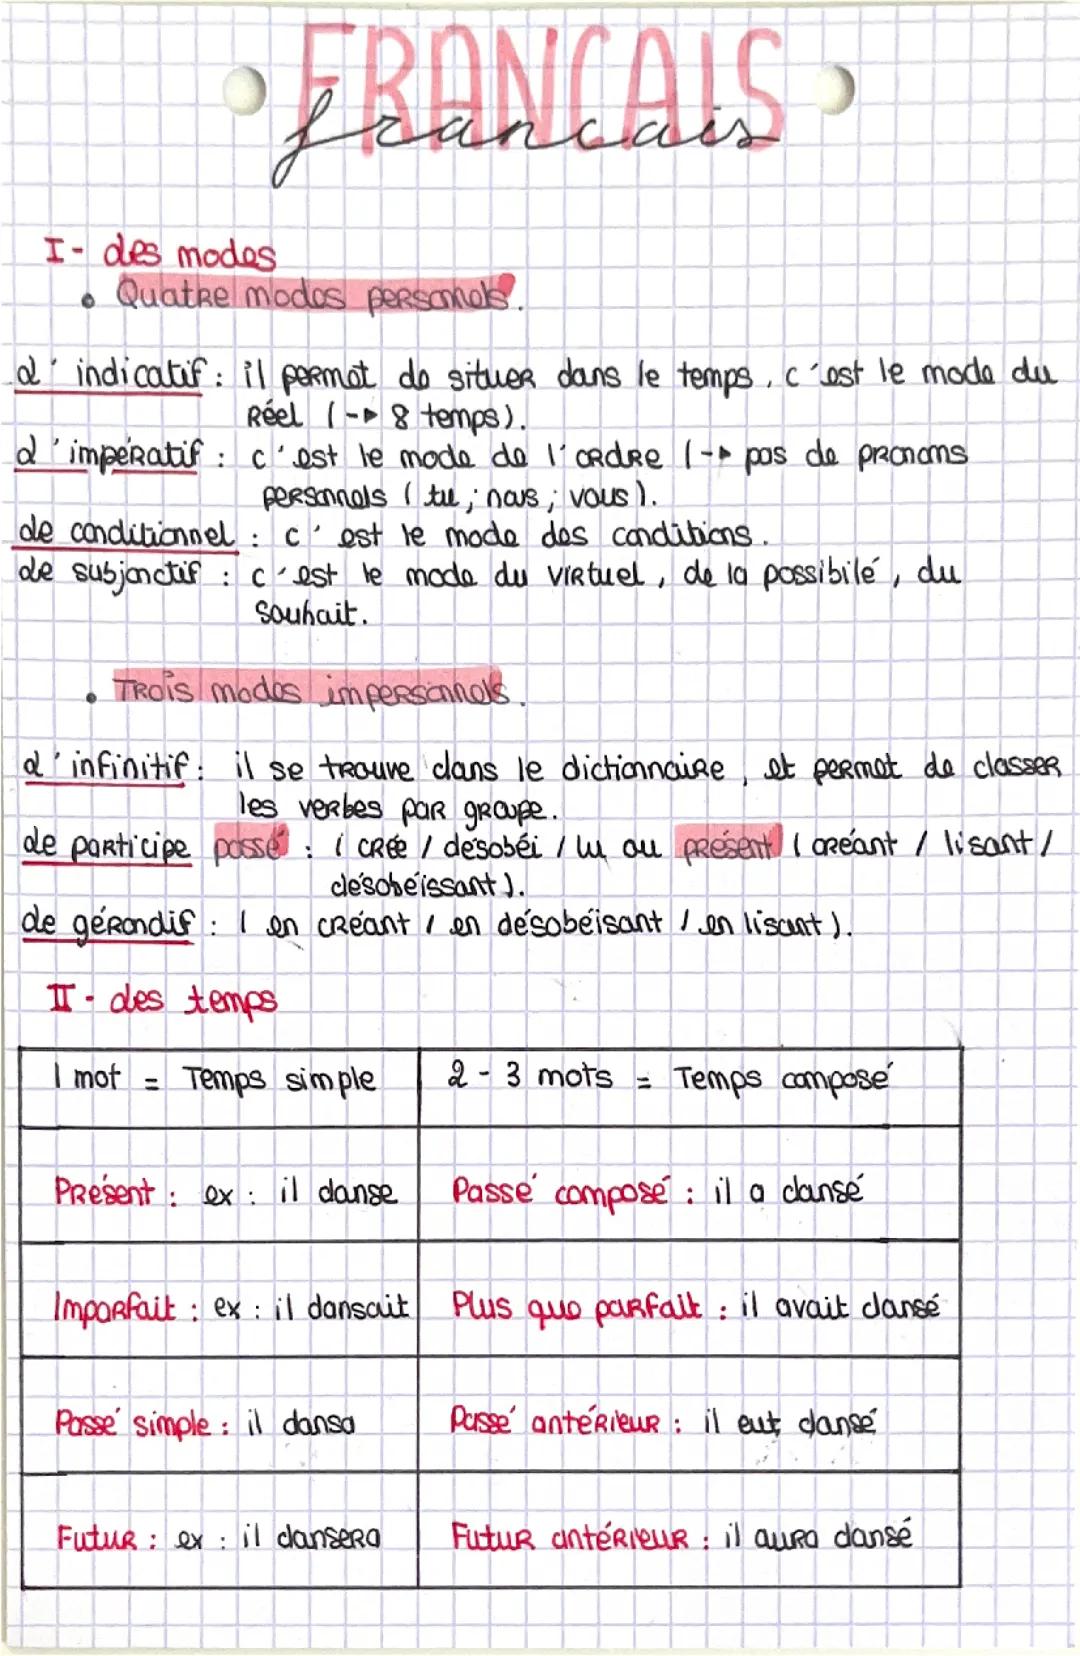 FRANCAIS
francais
I - Les modes
• Quatre modes personnels.
L'indicatif : il permet de situer dans le temps, c'est le mode du
Réel (-> 8 temps).
L'impératif : c'est le mode de l'ordre (-> pas de pronoms
personnels (tu ; nous ; vous).
Le conditionnel : c'est le mode des conditions.
Le subjonctif : c'est le mode du virtuel, de la possibilé, du
souhait.
• Trois modes impersonnels.
L'infinitif : il se trouve dans le dictionnaire, et permet de classer
les verbes par groupe.
Le participe passé : ( crée / désobéi / lu ou présent ( créant / lisant /
désobéissant ).
Le gérondif : ( en créant / en désobéisant / en lisant ).
II - Les temps
1 mot = Temps simple
2 - 3 mots = Temps composé
Présent : ex : il danse
Passé composé : il a dansé
Imparfait : ex : il dansait
Plus que parfait : il avait dansé
Passé simple : il dansa
Passé antérieur : il eut dansé
Futur : ex : il dansera
Futur antérieur : il aura dansé